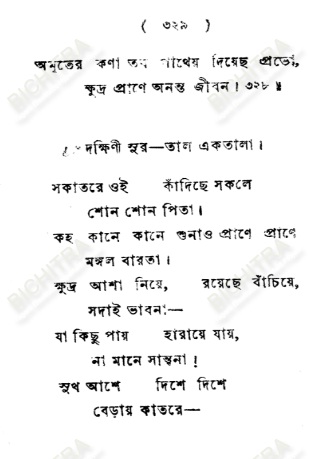 ( ৩২৯ )
অমৃতের কণা তব পাথেয় দিয়েছ প্রভো,
ক্ষুদ্র প্রাণে অনন্ত জীবন ! ৩২৮ ॥
দক্ষিণী সুর—তাল একতালা ।
সকাতরে ওই কাঁদিছে সকলে
শোন শোন পিতা ।
কহ কানে কানে শুনাও প্রাণে প্রাণে
মঙ্গল বারতা ।
ক্ষুদ্র আশা নিয়ে, রয়েছে বাঁচিয়ে,
সদাই ভাবনা—
যা কিছু পায় হারায়ে যায়,
না মানে সান্ত্বনা !
সুখ আশে দিশে দিশে
বেড়ায় কাতরে—
BICHITRA